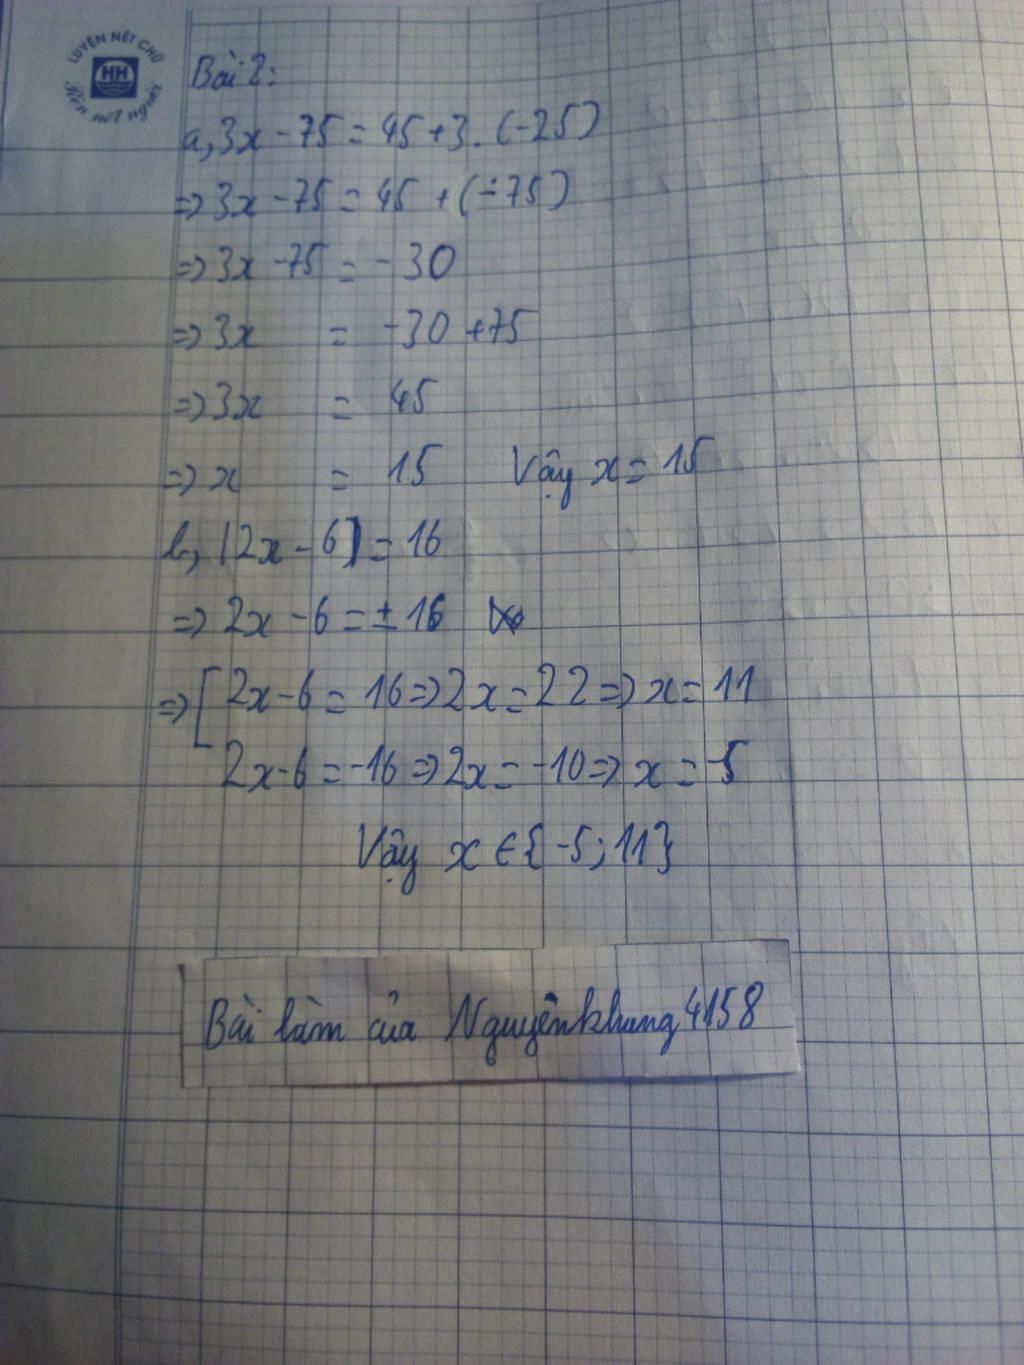 LUYỆN NÉT CHỮ
HH
Rèn nết người
Bài 2:
a, 3x - 75 = 45 + 3. (-25)
=> 3x - 75 = 45 + (-75)
=> 3x - 75 = -30
=> 3x = -30 + 75
=> 3x = 45
=> x = 15 Vậy x = 15
b, |2x - 6| = 16
=> 2x - 6 = ± 16
=> [ 2x - 6 = 16 => 2x = 22 => x = 11
2x - 6 = -16 => 2x = -10 => x = -5
Vậy x ∈ {-5; 11}
Bài làm của Nguyênkhang4158